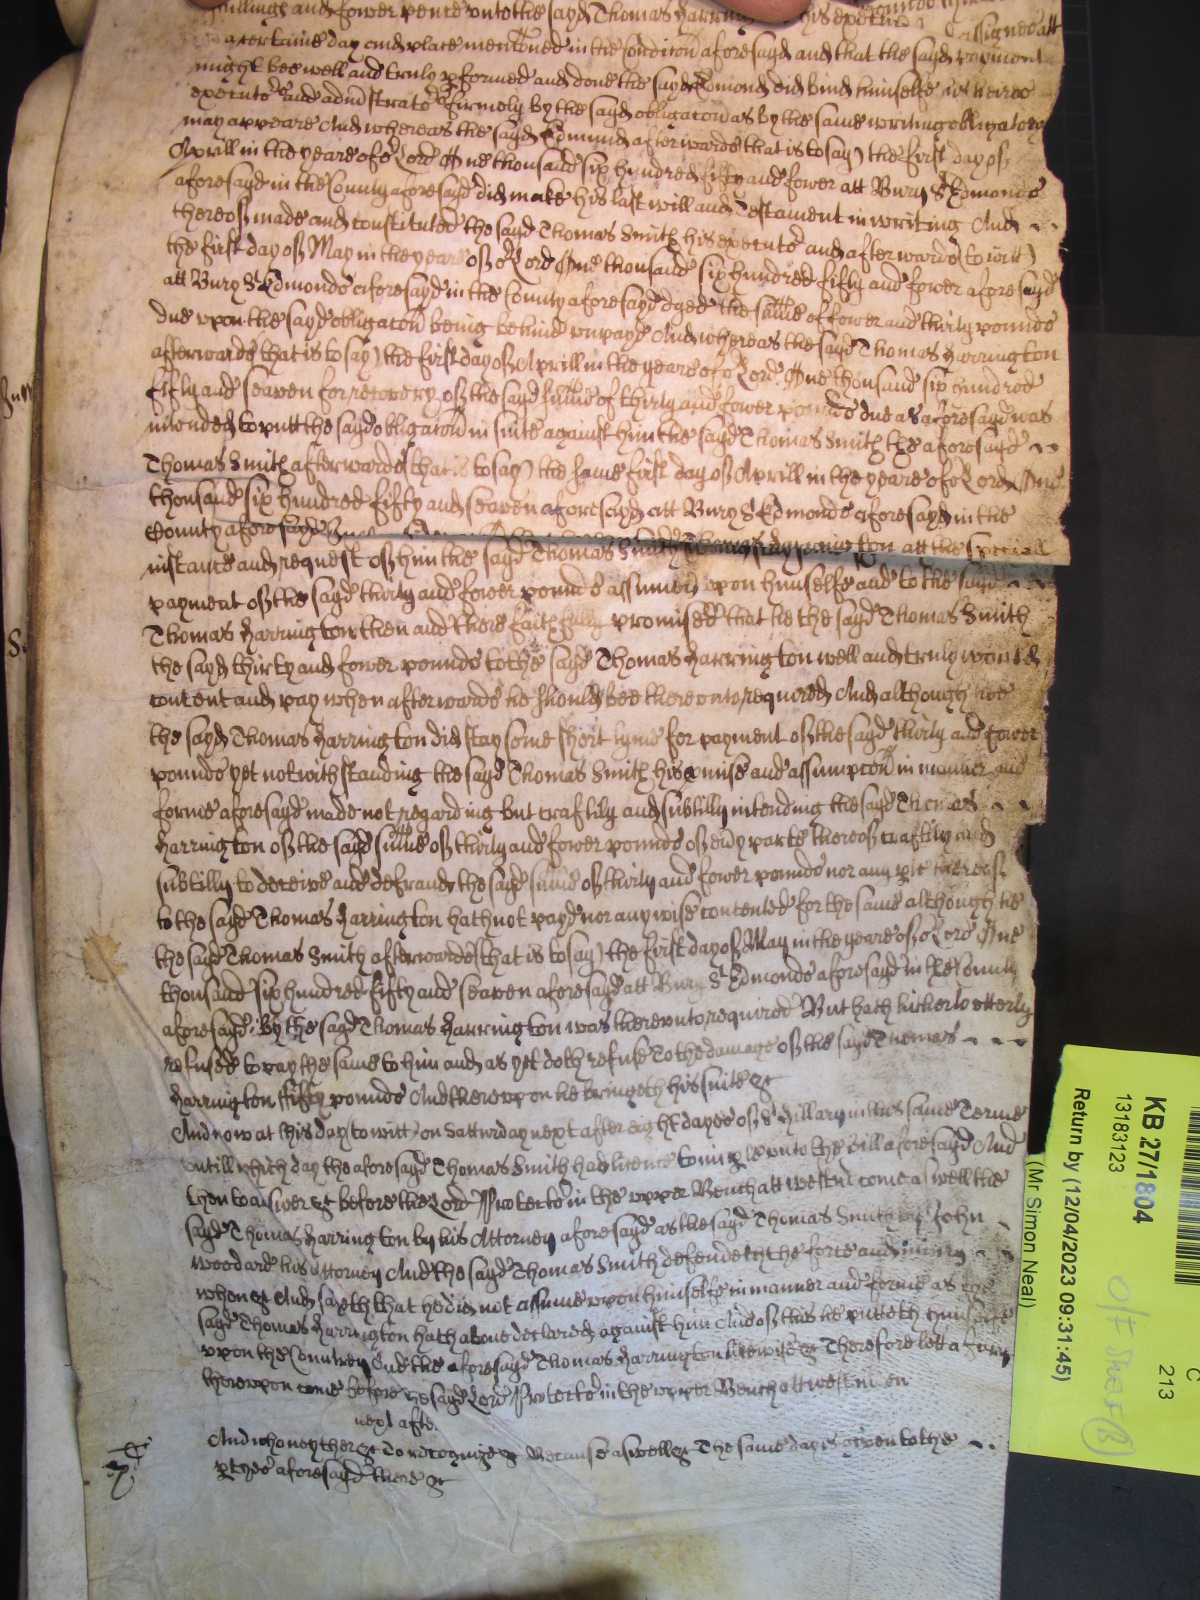 shillings and fower pence unto the sayd Thomas Harrington his executors assignes att
a certaine day and place mentioned in the Condicon aforesayd and that the sayd payment
might bee well and truly pformed and done the sayd Edmond did bind himselfe his heires
executors and administrators firmely by the sayd obligacon as by the same writing obligatory
may appeare And whereas the sayd Edmund afterwards that is to say) the first day of
Aprill in the yeare of or Lord One thousand six hundred fifty and fower att Bury St Edmonds
aforesayd in the County aforesayd did make his last will and Testament in writing And
thereof made and constituted the sayd Thomas Smith his executor and afterwards (to witt)
the first day of May in the yeare of or Lord One thousand six hundred fifty and fower aforesayd
att Bury St Edmonds aforesayd in the County aforesayd dyed the sume of fower and thirty pounds
due upon the sayd obligacon being behind unpayd And whereas the sayd Thomas Harrington
afterwards that is to say) the first day of Aprill in the yeare of or Lord One thousand six hundred
fifty and seaven for recovery of the sayd sume of thirty and fower pounds due as aforesayd was
intended to putt the sayd obligacon in suite against him the sayd Thomas Smith the aforesayd
Thomas Smith afterwards (that is to say) the same first day of Aprill in the yeare of or Lord One
thousand six hundred fifty and seaven aforesayd att Bury St Edmonds aforesayd in the
County aforesayd Thomas Harrington att the speciall
instance and request of him the sayd Thomas Smith
payment of the sayd thirty and fower pounds assumed upon himselfe and to the sayd
Thomas Harrington then and there faithfully promised that he the sayd Thomas Smith
the sayd thirty and fower pounds to the sayd Thomas Harrington well and truly would
content and pay when afterwards he should bee thereunto required And although hee
the sayd Thomas Harrington did stay some short tyme for payment of the sayd thirty and fower
pounds yet notwithstanding the sayd Thomas Smith his pmise and assumpcon in manner and
forme aforesayd made not regarding but craftily and subtilly intending the sayd Thomas
Harrington of the sayd sume of thirty and fower pounds of every parte thereof craftily and
subtilly to deceive and defraud the sayd sume of thirty and fower pounds nor any pte thereof
to the sayd Thomas Harrington hath not payd nor any wise contented for the same although he
the sayd Thomas Smith afterwards (that is to say) the first day of May in the yeare of or Lord One
thousand six hundred fifty and seaven aforesayd att Bury St Edmonds aforesayd in the County
aforesayd By the sayd Thomas Harrington was thereunto required But hath hitherto utterly
refused to pay the same to him and as yet doth refuse To the damage of the sayd Thomas
Harrington fifty pounds And thereupon he bringeth his suite &c
And now at this day to witt on Satturday next after eight dayes of St Hillary in this same Terme
untill which day the aforesayd Thomas Smith had licence to imparle unto the Bill aforesayd And
then to answer &c before the Lord Protector in the upper Bench att westm come aswell the
sayd Thomas Harrington by his Attorney aforesayd as the sayd Thomas Smith by John
Woodard his Attorney And the sayd Thomas Smith defendeth the force and iniury
when &c And sayth that he did not assume upon himselfe in manner and forme as the
sayd Thomas Harrington hath above declared against him And of this he putteth himselfe
upon the Countrey And the aforesayd Thomas Harrington likewise &c Therefore lett a Jury
thereupon come before ye sayd Lord Protector in the upper Bench att westm on
next after
And who neyther &c To recognize &c Because aswell &c The same day is given to the
ptyes aforesayd there &c
KB 27/1804
13183123
Return by (12/04/2023 09:31:45)
(Mr Simon Neal)
C
213